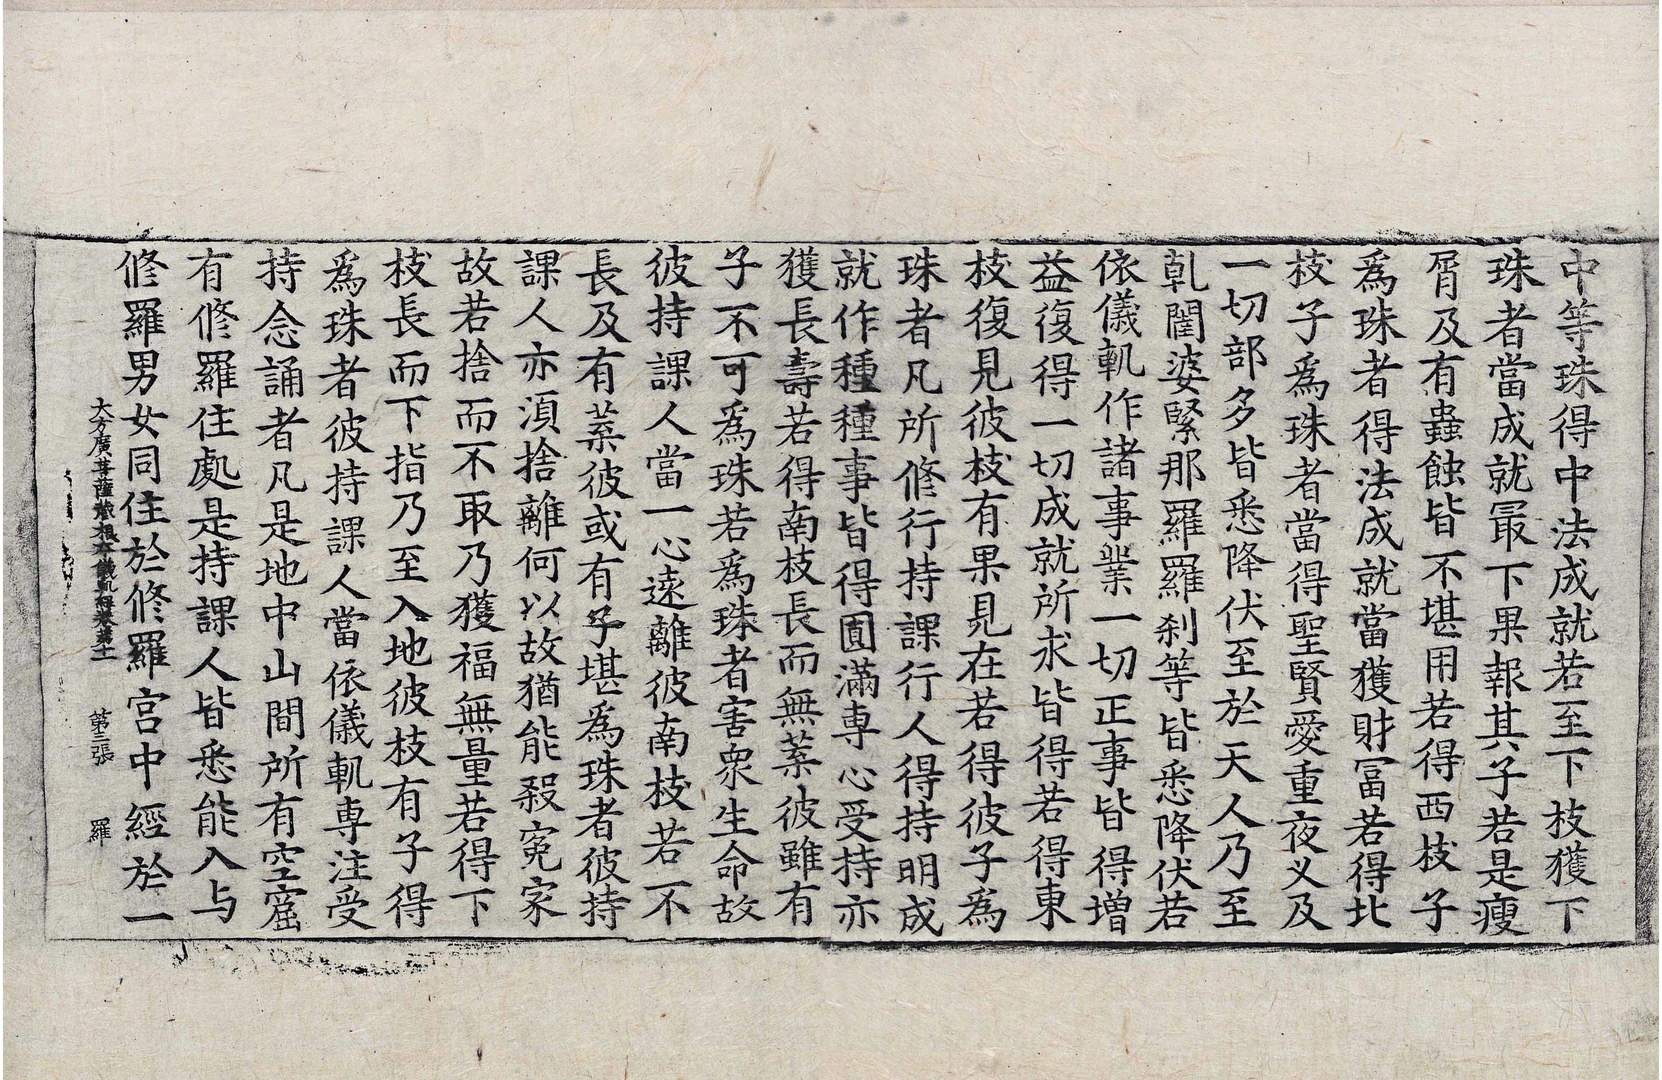 中等珠得中法成就若至下枝獲下
珠者當成就㝡下果報其子若是瘦
屑及有蟲蝕皆不堪用若得西枝子
爲珠者得法成就當獲財冨若得北
枝子爲珠者當得聖賢愛重夜义及
一切部多皆悉降伏至於天人乃至
乹闥婆緊那羅羅刹等皆悉降伏若
依儀軌作諸事業一切正事皆得增
益復得一切成就所求皆得若得東
枝復見彼枝有果見在若得彼子爲
珠者凡所修行持課行人得持明成
就作種種事皆得圎滿専心受持亦
獲長壽若得南枝長而無葉彼雖有
子不可爲珠若爲珠者害衆生命故
彼持課人當一心遠離彼南枝若不
長及有葉彼或有子堪爲珠者彼持
課人亦湏捨離何以故猶能殺寃家
故若捨而不取乃獲福無量若得下
枝長而下指乃至入地彼枝有子得
爲珠者彼持課人當依儀軌専注受
持念誦者凡是地中山間所有空窟
有修羅住處是持課人皆悉能入与
修羅男女同住於修羅宫中經於一
大方廣菩薩藏根本儀軌經卷第十一 第三張 羅